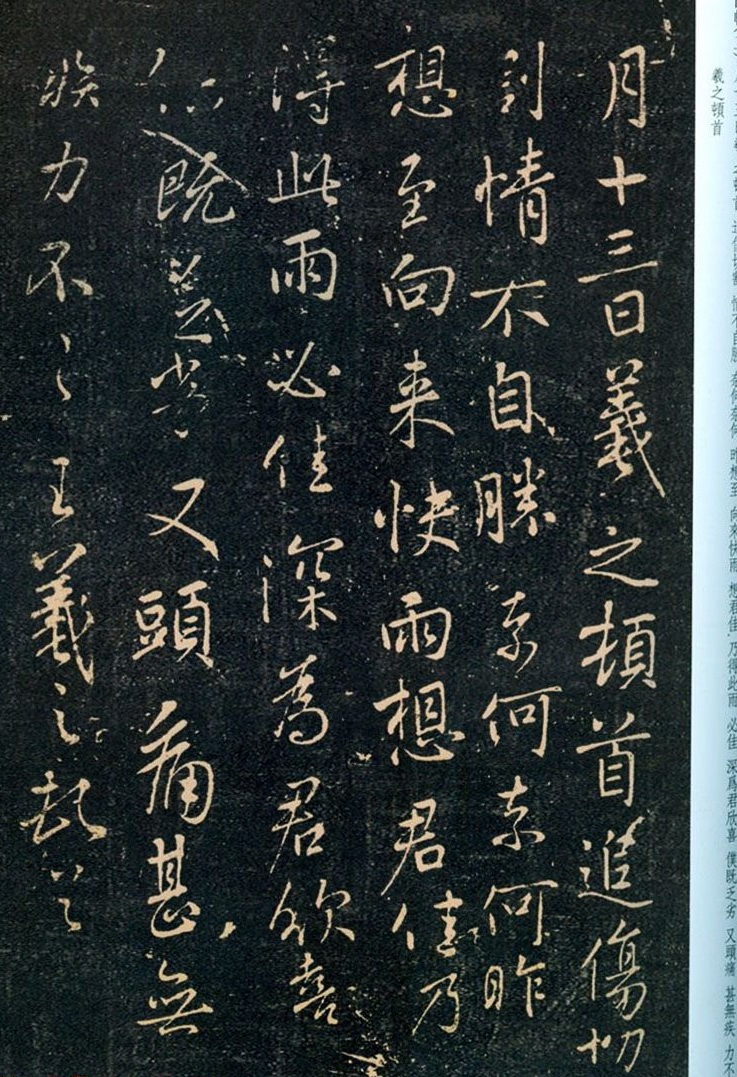 十三日羲之頓首 追傷切割 情不自勝 奈何奈何 昨想至 向来快雨 想君佳 乃得此雨 必佳 深爲君欣喜 僕既乏劣 又頭痛 甚無疾 力不
羲之頓首
月十三日羲之頓首追傷切
割情不自勝奈何奈何昨
想至向来快雨想君佳乃
得此雨必佳深為君欣喜
僕既乏劣又頭痛甚無
疾力不王羲之